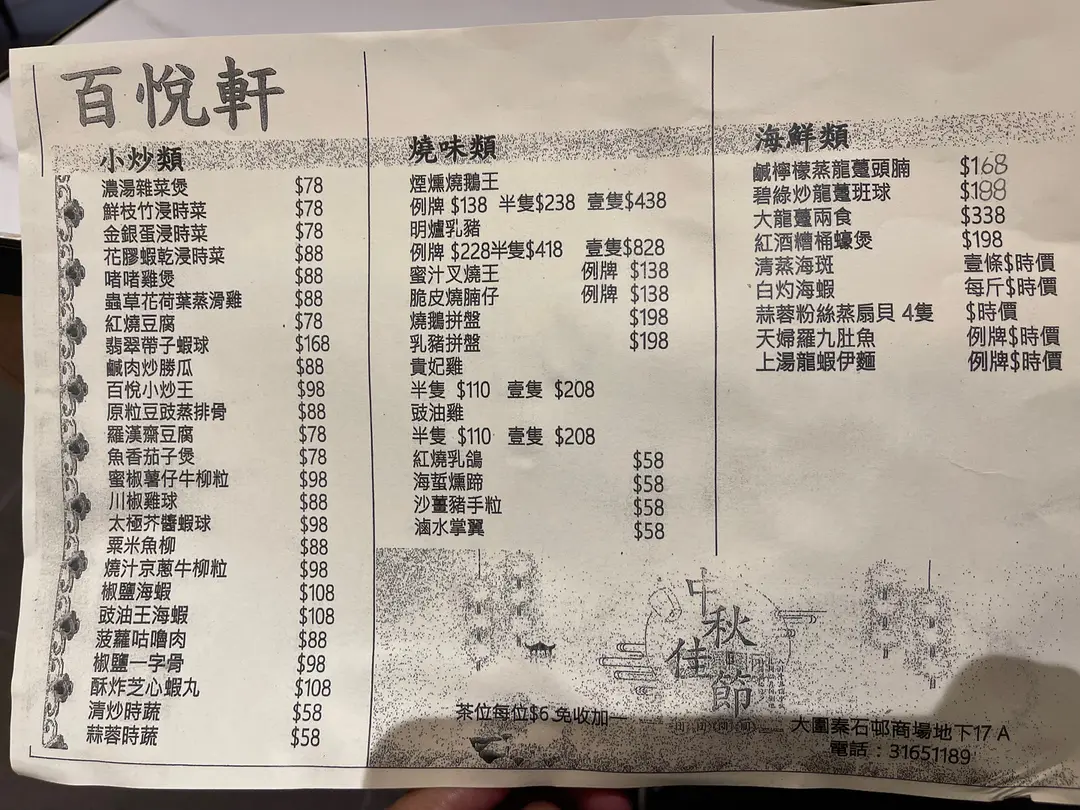 百悅軒
小炒類
濃湯雜菜煲 $78
鮮枝竹浸時菜 $78
金銀蛋浸時菜 $78
花膠蝦乾浸時菜 $88
啫啫雞煲 $88
蟲草花荷葉蒸滑雞 $88
紅燒豆腐 $78
翡翠帶子蝦球 $168
鹹肉炒勝瓜 $88
百悅小炒王 $98
原粒豆豉蒸排骨 $88
羅漢齋豆腐 $78
魚香茄子煲 $78
蜜椒薯仔牛柳粒 $98
川椒雞球 $88
太極芥醬蝦球 $98
粟米魚柳 $88
燒汁京蔥牛柳粒 $98
椒鹽海蝦 $108
豉油王海蝦 $108
菠蘿咕嚕肉 $88
椒鹽一字骨 $98
酥炸芝心蝦丸 $108
清炒時蔬 $58
蒜蓉時蔬 $58
燒味類
煙燻燒鵝王
例牌 $138 半隻$238 壹隻$438
明爐乳豬
例牌 $228半隻$418 壹隻$828
蜜汁叉燒王 例牌 $138
脆皮燒腩仔 例牌 $138
燒鵝拼盤 $198
乳豬拼盤 $198
貴妃雞
半隻 $110 壹隻 $208
豉油雞
半隻 $110 壹隻 $208
紅燒乳鴿 $58
海蜇燻蹄 $58
沙薑豬手粒 $58
滷水掌翼 $58
海鮮類
鹹檸檬蒸龍躉頭腩 $168
碧綠炒龍躉班球 $188
大龍躉兩食 $338
紅酒糟桶蠔煲 $198
清蒸海斑 壹條$時價
白灼海蝦 每斤$時價
蒜蓉粉絲蒸扇貝 4隻 $時價
天婦羅九肚魚 例牌$時價
上湯龍蝦伊麵 例牌$時價
中秋佳節
茶位每位$6 免收加一
大圍秦石邨商場地下17 A
電話：31651189